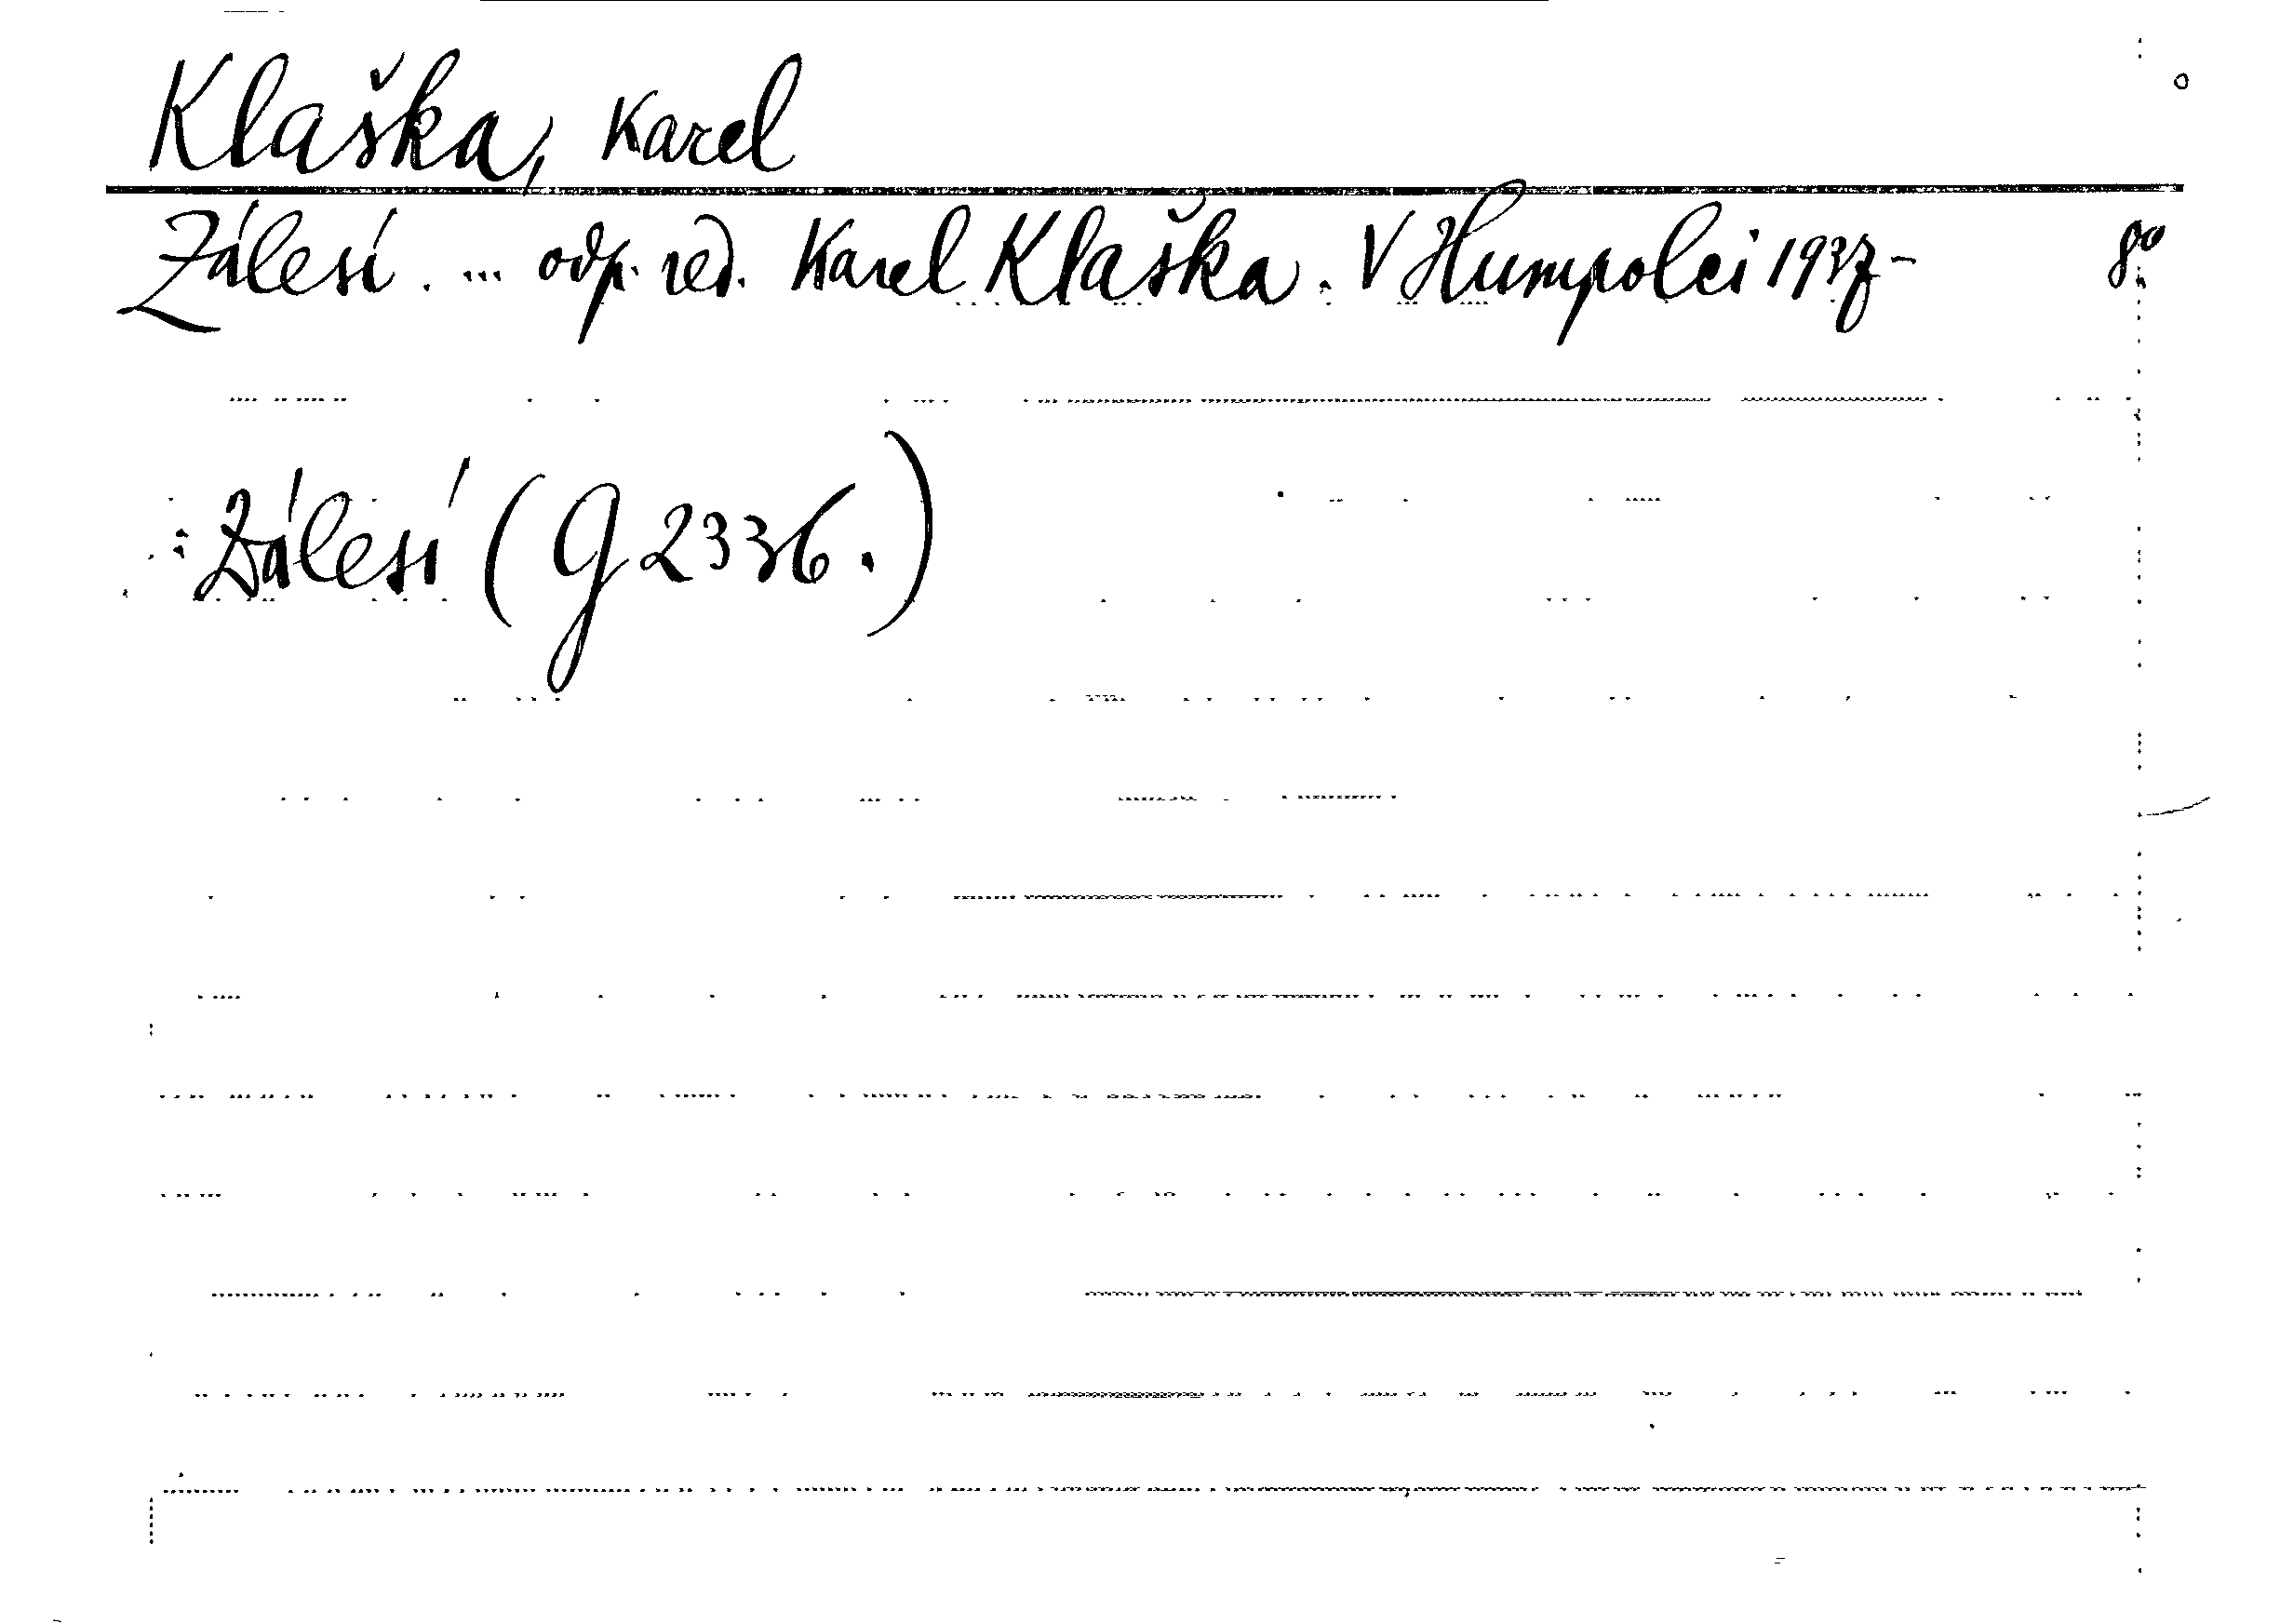 Klaška, Karel
Zálesí. ... odp. red. Karel Klaška. V Humpolci 1937- 8°
: Zálesí (G 2336.)